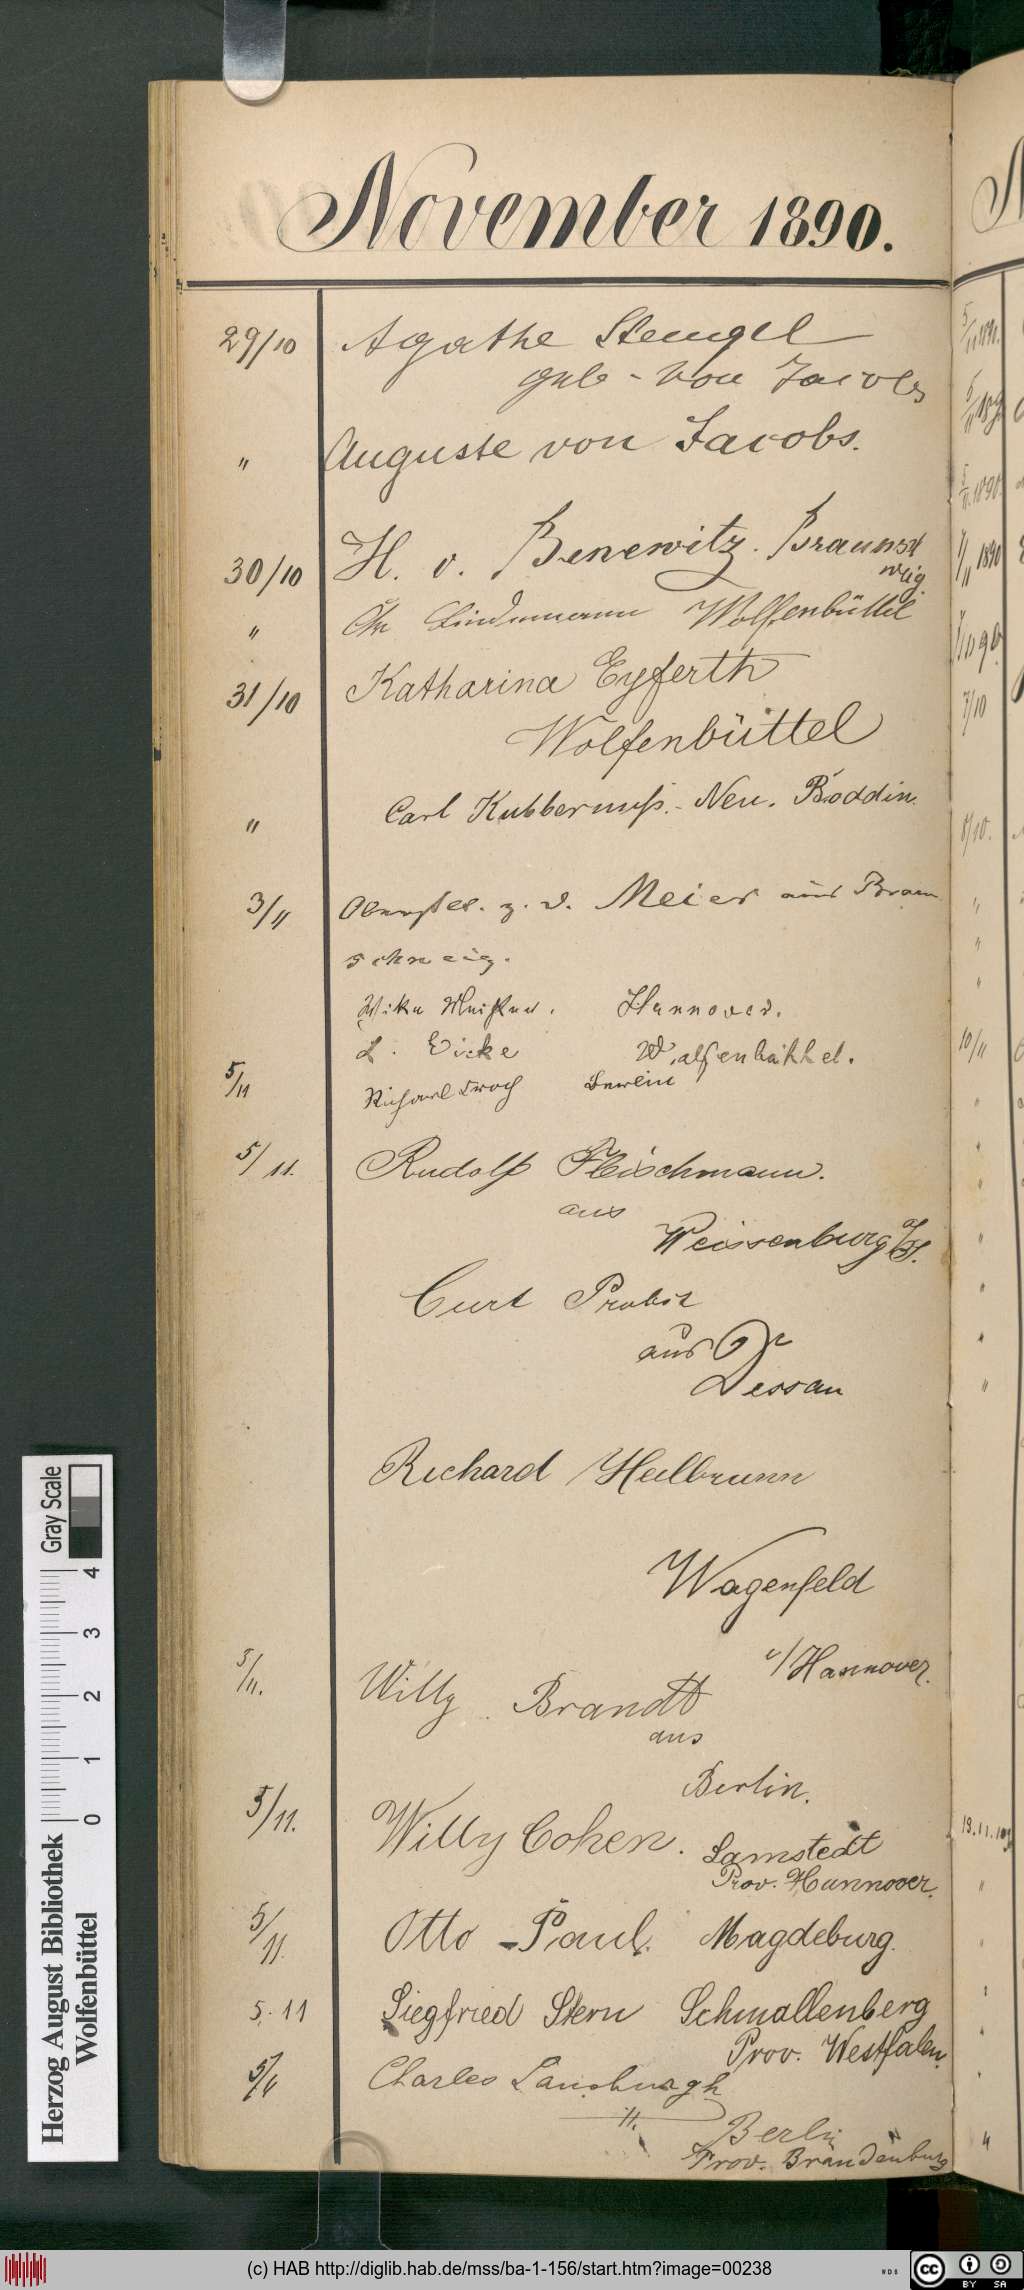 November 1890.
29/10 Agathe Stengel
geb. von Jacobs
" Auguste von Jacobs.
30/10 H. v. Benewitz. Braunsch
weig
" Chr Lindemann Wolfenbüttel
31/10 Katharina Eyferth
Wolfenbüttel
" Carl Kubbernuß. - Neu. Boddin.
3/11 z. D. Meier aus Braun
schweig.
Hannover.
L. Eicke Wolfenbüttel.
5/11 Richard Berlin
5/11. Rudolf Fleischmann.
aus
Weissenburg a/S.
Curt Probst
aus
Dessau
Richard Heilbrunn
Wagenfeld
v/Hannover.
5/11. Willy Brandt
aus
Berlin.
5/11. Willy Cohen. Lamstedt
Prov. Hannover.
5/11. Otto Paul. Magdeburg.
5.11 Siegfried Stern Schmallenberg
Prov. Westfalen.
5/11 Charles Landsburgh
Berlin
Prov. Brandenburg
Herzog August Bibliothek
Wolfenbüttel
0 1 2 3 4
Gray Scale
(c) HAB http://diglib.hab.de/mss/ba-1-156/start.htm?image=00238
WDB
CC BY SA